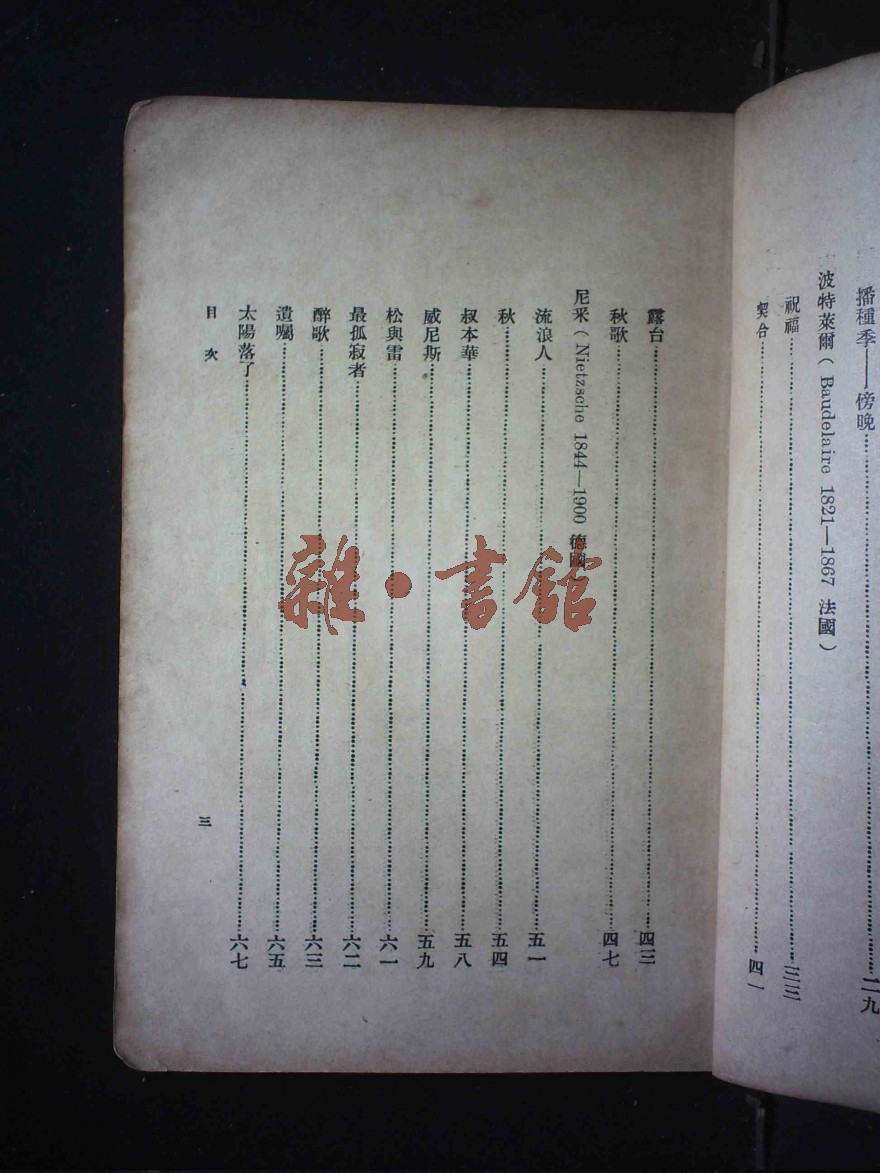 播種季——傍晚 二九
波特萊爾(Baudelaire 1821—1867 法國)
祝福 三三
契合 四一
露台 四三
秋歌 四七
尼采(Nietzsche 1844—1900 德國)
流浪人 五一
秋 五四
叔本華 五八
威尼斯 五九
松與雷 六一
最孤寂者 六二
醉歌 六三
遺囑 六五
太陽落了 六七
目次
三
雜·書館